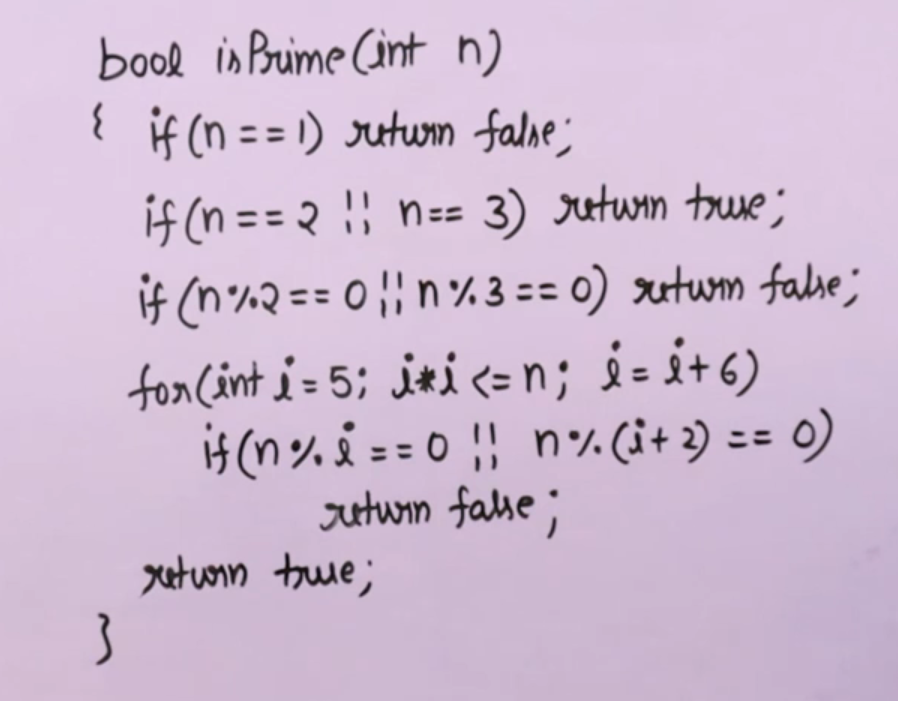 bool isPrime(int n)
{ if(n == 1) return false;
if(n == 2 || n == 3) return true;
if(n%2 == 0 || n%3 == 0) return false;
for(int i = 5; i*i <= n; i = i+6)
if(n % i == 0 || n%(i+2) == 0)
return false;
return true;
}